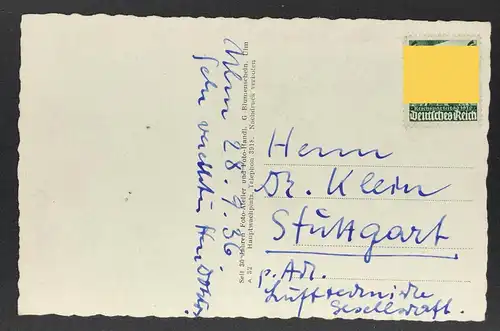 Ulm 28.9.36
Sehr verehrter Herr Doktor,
Seit 30 Jahren Foto-Atelier und Foto-Handl. G. Blumenschein, Ulm
Hauptwachplatz, Telephon 3315. Nachdruck verboten
Reichsparteitag 1936
Deutsches Reich
Herrn
Dr. Klein
Stuttgart
p. Adr.
Lufttechnische
Gesellschaft.